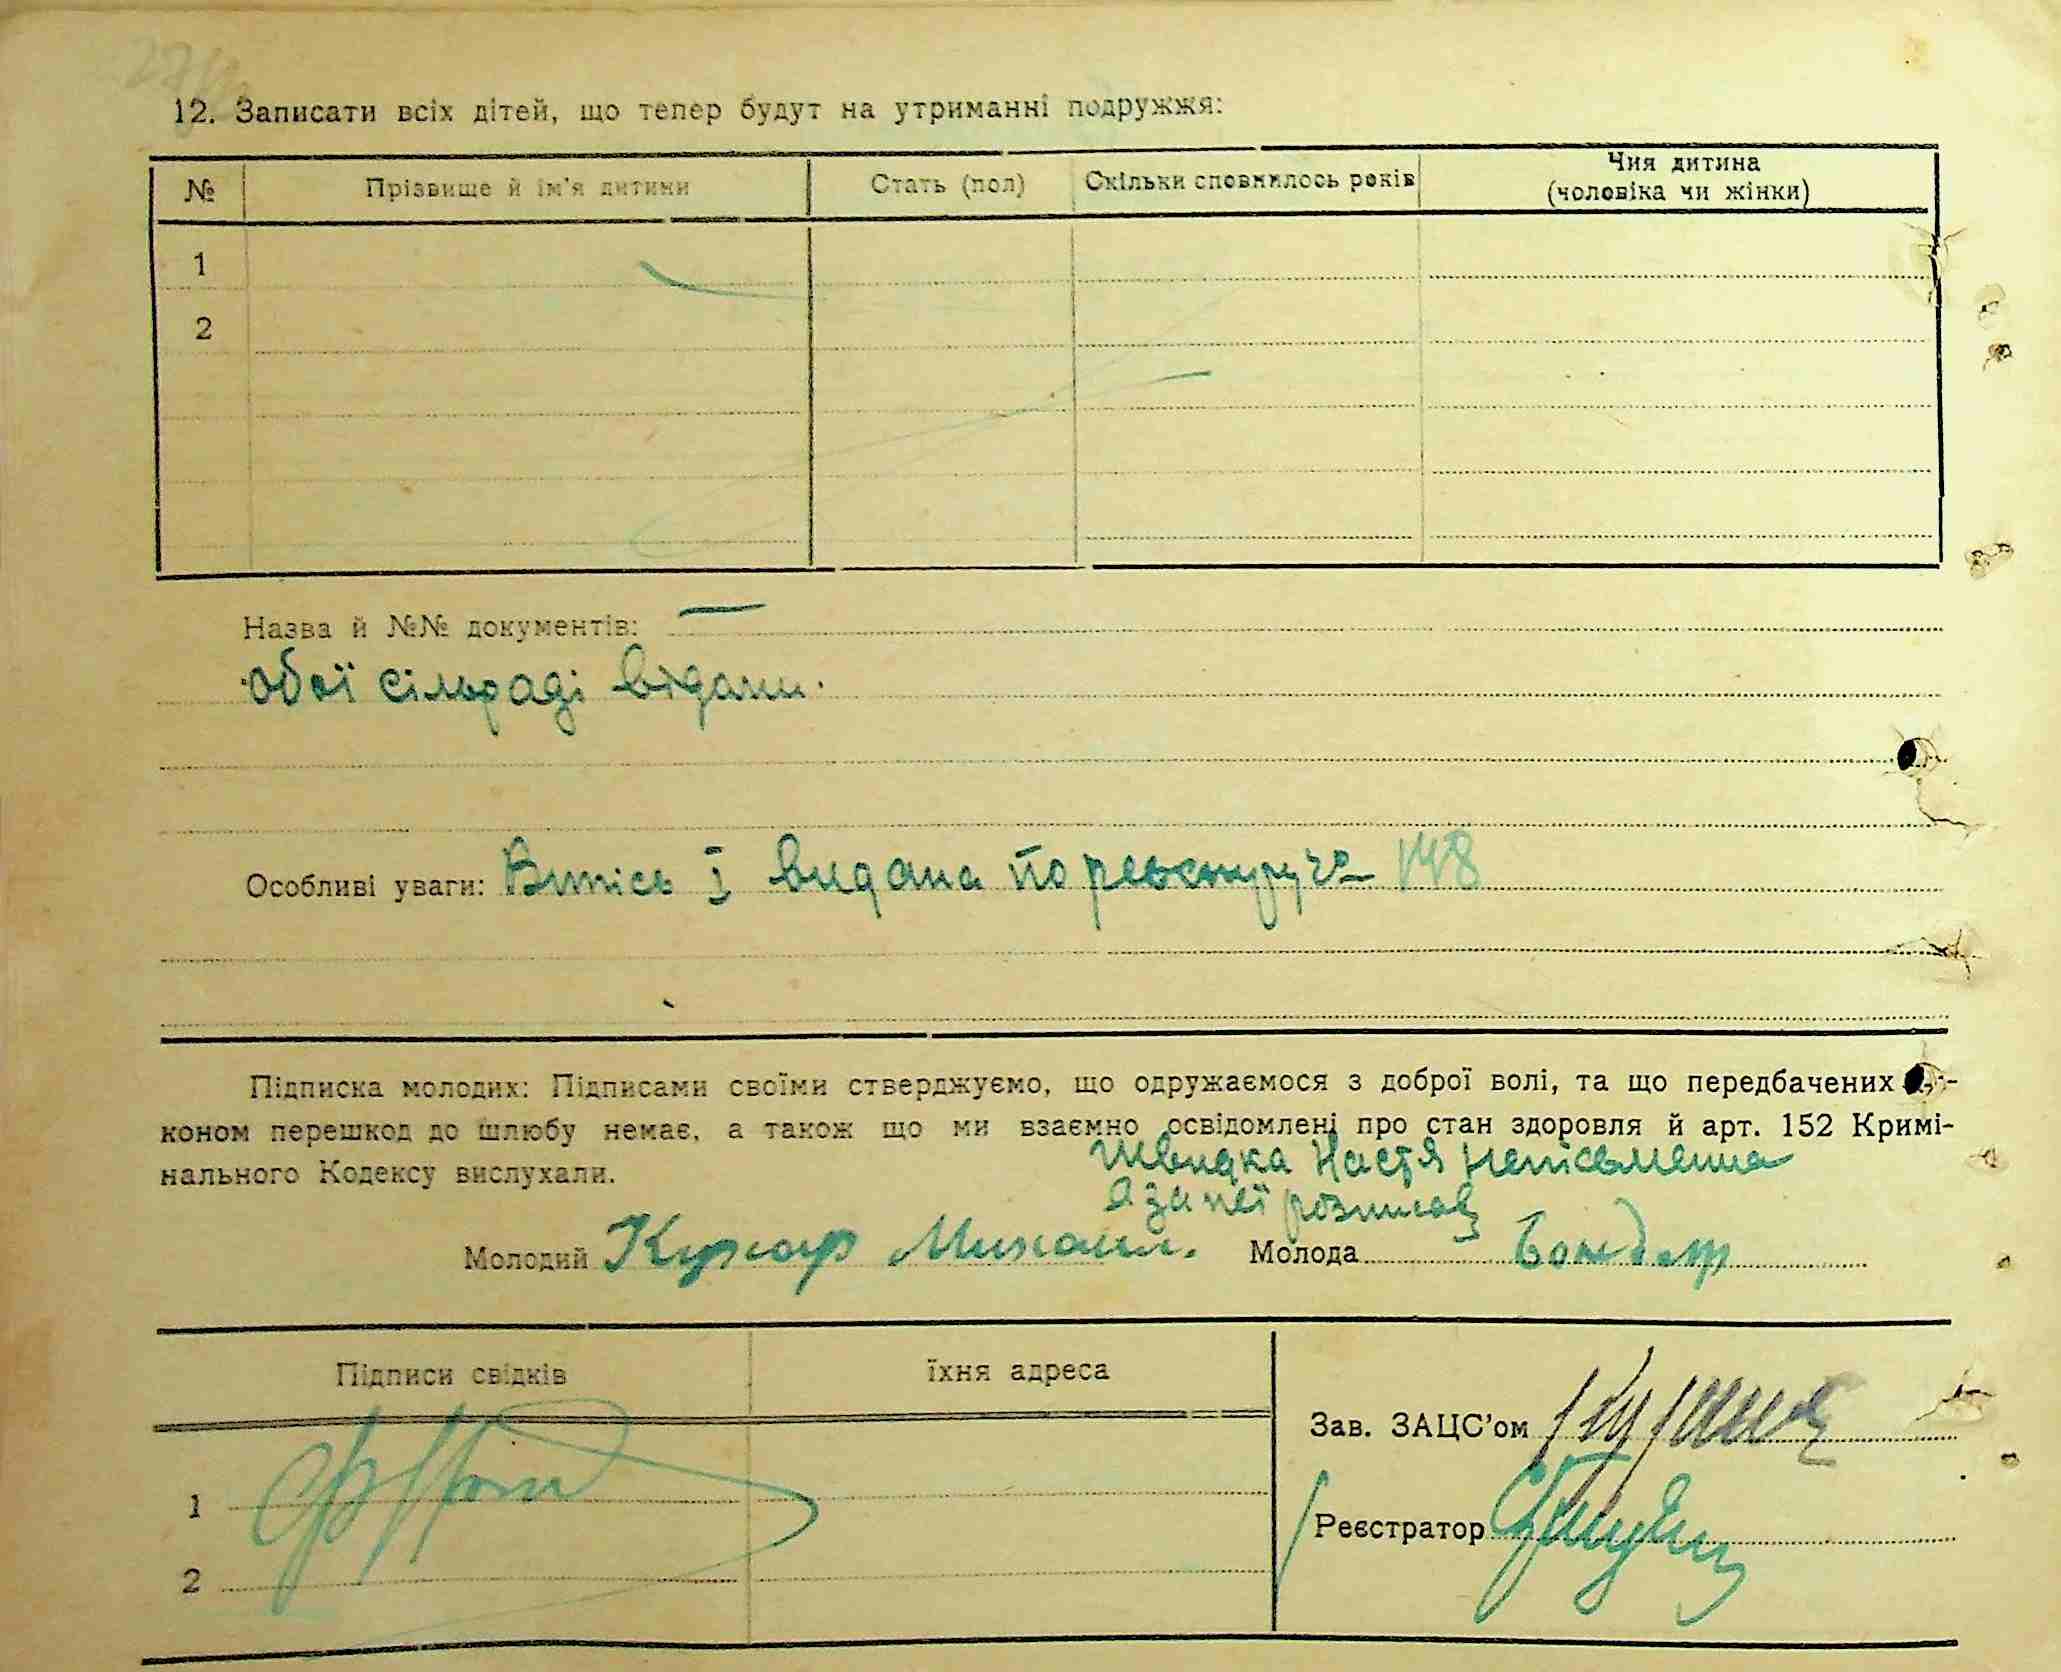 12. Записати всіх дітей, що тепер будут на утриманні подружжя:
№ Прізвище й ім'я дитини Стать (пол) Скільки сповнилось років Чия дитина
(чоловіка чи жінки)
1
2
Назва й №№ документів: —
обої сільраді відоми.
Особливі уваги: Випісь і видана по реєстру № 148
Підписка молодих: Підписами своїми стверджуємо, що одружаємося з доброї волі, та що передбачених
коном перешкод до шлюбу немає, а також що ми взаємно освідомлені про стан здоровля й арт. 152 Кримі-
нального Кодексу вислухали.
Швидка Настя неписьменна
а за неї розписавс
Молодий Михаил. Молода Бондар
Підписи свідків їхня адреса
Зав. ЗАЦС'ом
1
Реєстратор
2